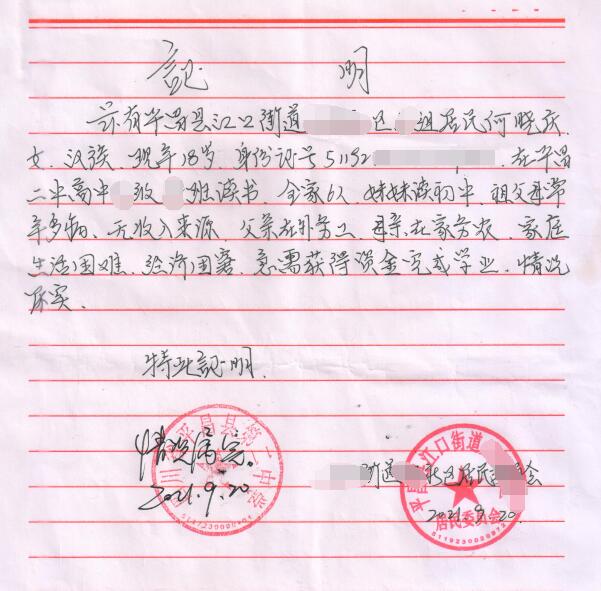 証 明
兹有平昌县江口街道 区 组居民何晓庆,
女、汉族、现年18岁、身份证号51192 在平昌
二中高中 级 班读书、全家6人、妹妹读初中、祖父母常
年多病、无收入来源、父亲在外务工、母亲在家务农、家庭
生活困难、经济困窘、急需获得资金完成学业、情况
属实.
特此証明.
四川省平昌县第二中学
情况属实。
2021.9.20
5119230000
平昌县江口街道
街道 社区居民 会
2021.9.20.
居民委员会
5119230028972